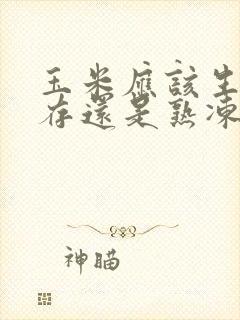 玉米應該生
存還是熟凍
神瞄